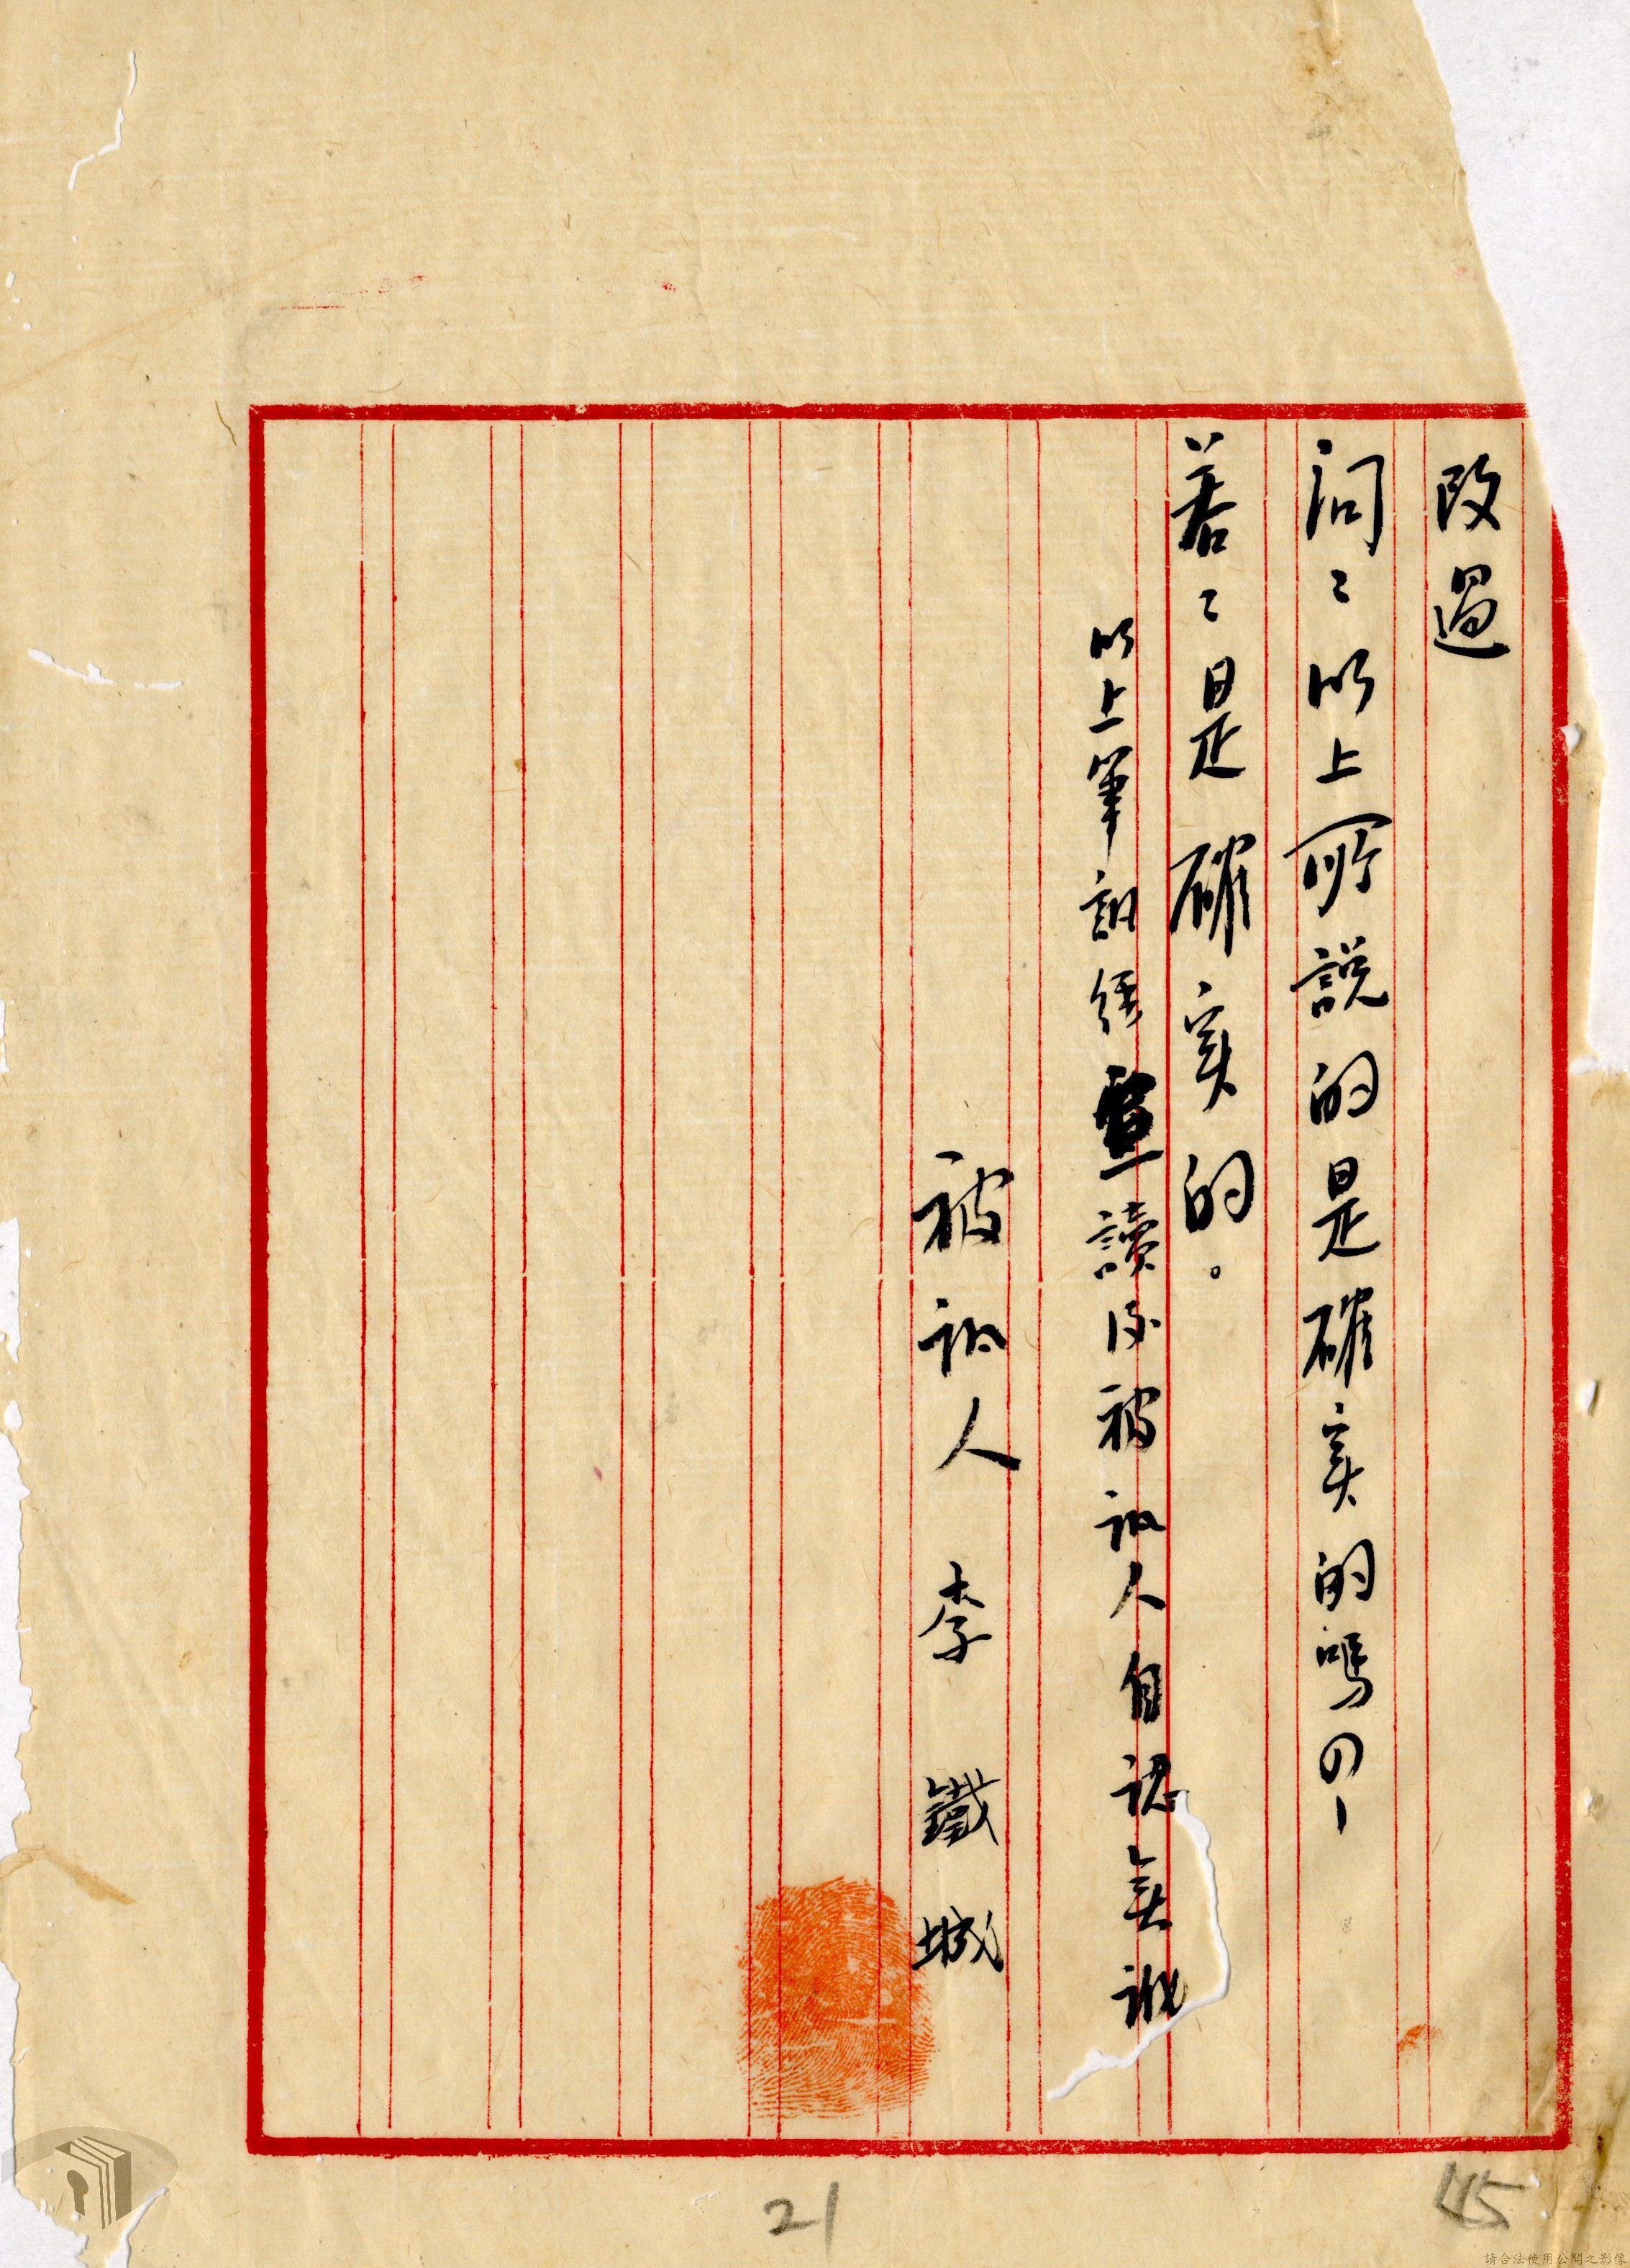 改過
問：以上所說的是確实的嗎？
答：是確实的。
以上筆訊經宣讀後被訊人自認無訛
被訊人 李鐵城
21
45
請合法使用公開之影像